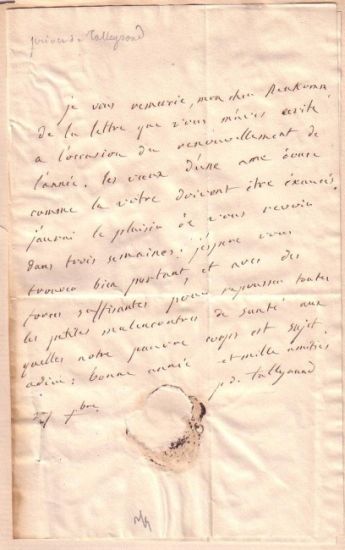 prince de Talleyrand
je vous remercie, mon cher
de la lettre que vous m'avez écrite
a l'occasion du renouvellement de
l'année. les vœux d'une ame douce
comme la votre doivent être exaucés.
j'aurai le plaisir de vous revoir
dans trois semaines: j'espere vous
trouver bien portant, et avec des
forces suffisantes pour repousser toutes
les petites malencontres de santé aux
quelles notre pauvre corps est sujet.
adieu; bonne année et mille amitiés
p. de Talleyrand
xbre